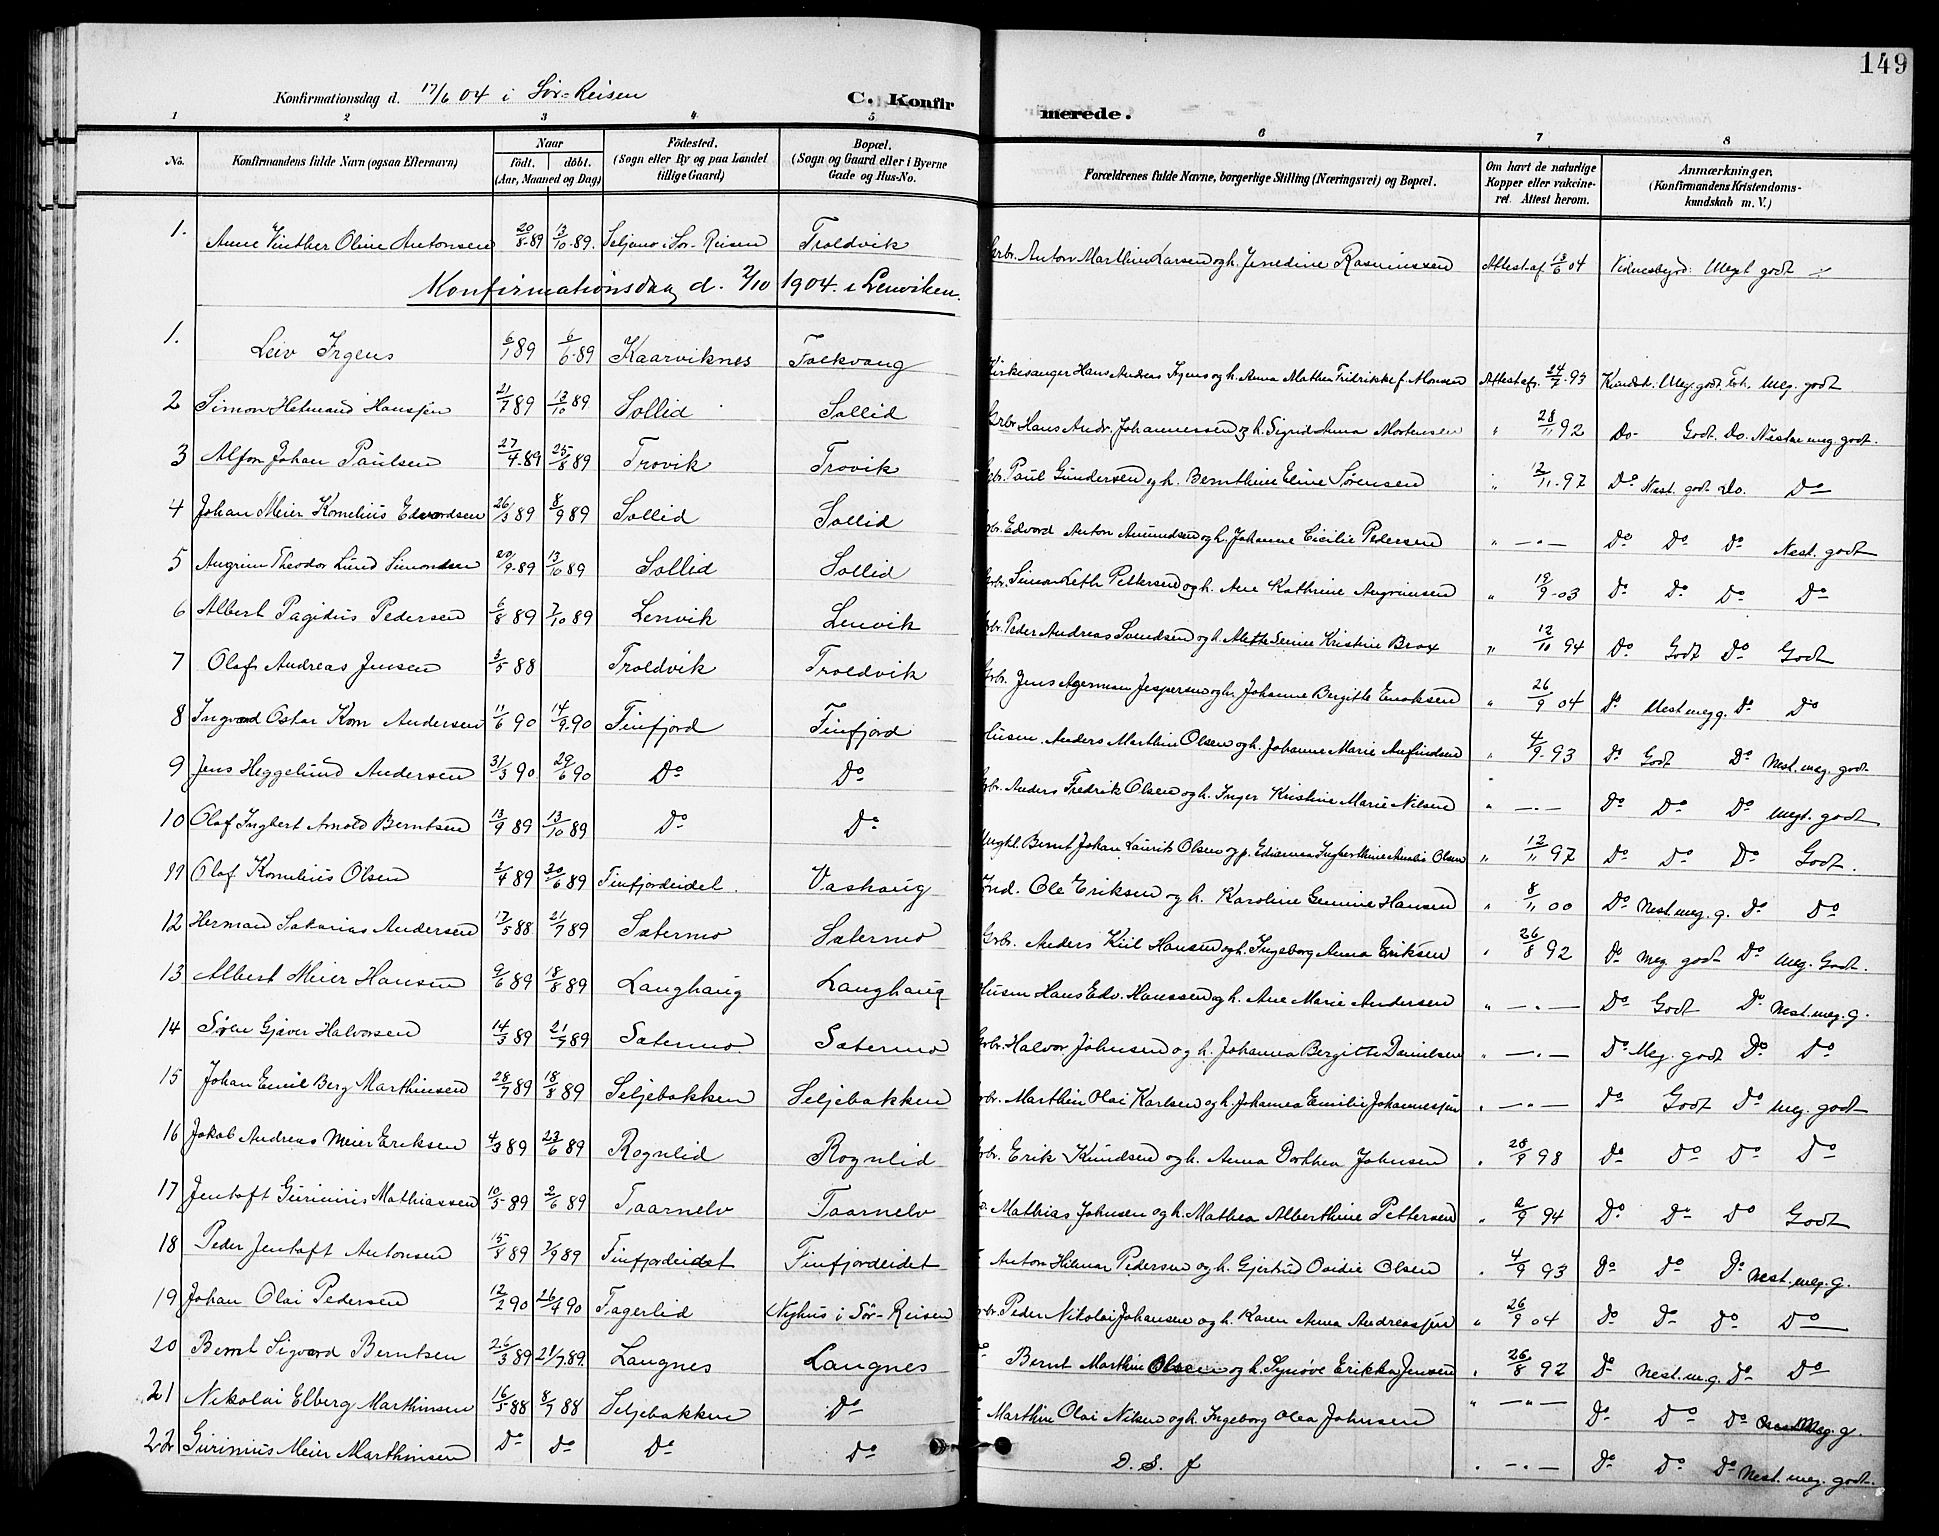 149
Konfirmationsdag d. 17/6 04 i Sör-Reisen C. Konfirmerede.
1 2 3 4 5 6 7 8
No. Konfirmandens fulde Navn (ogsaa Efternavn) Naar födt. döbt. (Aar, Maaned og Dag) Födested. (Sogn eller By og paa Landet tillige Gaard) Bopæl. (Sogn og Gaard eller i Byerne Gade og Hus-No. Forældrenes fulde Navne, borgerlige Stilling (Næringsvei) og Bopæl. Om havt de naturlige Kopper eller vakcineret. Attest herom. Anmærkninger. (Konfirmandens Kristendomskundskab m. V.)
1. Anne Vinther Oline Antonsen 20/8-89 13/10-89. Seljenes i Sör-Reisen Troldvik Grbr. Anton Marthin Larsen og h. Jenedine Rasmussen Attest af 13/6 04 Vidnesbyrd: Meget godt
Konfirmationsdag d. 2/10 1904 i Lenviken.
1. Leiv Irgens 6/1 89 6/6-89 Kaarviknes Tolkvang Kirkesanger Hans Andreas Irgens og h. Anna Mathea Fridrikke f. Monsen Attest af 24/7-93 Kundsk. Meg. godt Meg. godt
2 Simon Hetmand Hanssen 21/7 89 13/10 89 Sollid Sollid Grbr Hans Andr. Johannessen og h. Sigrid Anna Mortensen " 28/11 92 Do- Godt. Do. Næsten meg. godt.
3 Alfon Johan Paulsen 27/4-89 25/8 89 Trovik Trovik Grbr. Paul Gundersen og h. Bernthine Eline Sørensen " 12/11-97 Do Nest. godt Do. Do
4 Johan Meier Kornelius Edvardsen 26/3 89 8/9 89 Sollid Sollid Grbr. Edvard Anton Amundsen og h. Johanne Cicilie Pedersen " -"- Do Do Do Nest. godt
5 Angrim Theodor Lund Simonsen 20/9-89 13/10 89 Sollid Sollid Grbr. Simon Leth Pettersen og h. Ane Kathrine Angrimsen " 19/9-03 Do Do Do Do
6 Albert Pagidius Pedersen 6/8 89 7/10 89 Lenvik Lenvik Grbr. Peder Andreas Svendsen og h. Alette Serine Kristine Brox " 12/10 94 Do Godt Do Godt
7 Olaf Andreas Jensen 3/5 88 Troldvik Troldvik Grbr. Jens Agerman Jespersen og h. Johanne Bergitte Enoksen " 26/9 04 Do Nest meg g. Do Do
8 Ingvard Oskar Korn Andersen 11/6 90 14/9-90 Finfjord Finfjord Husm. Anders Marthin Olsen og h. Johanne Marie Anfindsen " 4/9-93 Do Godt Do Nest. meg. godt
9 Jens Heggelund Andersen 31/3 90 29/6 90 Do Do Grbr. Anders Fredrik Olsen og h. Inger Kristine Marie Nilsen " -"- Do Do Do Megt. godt
10 Olaf Ingbert Arnold Berntsen 13/9 89 13/10 89 Do Do Ungkl. Bernt Johan Laurits Olsen og p. Edianna Ingberthine Amalie Olsen " 12/11 97 Do Do Do Godt.
11 Olaf Kornelius Olsen 2/4 89 30/6 89 Finfjordeidet. Vashaug Ind. Ole Eriksen og h. Karoline Gemine Hansen " 8/11 00 Do Nest. meg. g. Do Do
12 Herman Sakarias Andersen 17/5 88 21/7 89 Sætermo Sætermo Grbr. Anders Kiil Hansen og h. Ingeborg Anna Eriksen " 26/8 92 Do Meg. godt Do Meg. Godt.
13 Albert Meier Hansen 9/6 89 18/8 89 Langhaug Langhaug Husm Hans Edv. Hanssen og h. Ane Marie Andersen " -"- Do Godt Do Nest. meg. g.
14 Sören Gjæver Halvorsen 14/3 89 21/7 89 Sætermo Sætermo Grbr. Halvor Johnsen og h. Johanna Bergitte Danielsen " -"- Do Meg. godt Do Do
15 Johan Emil Berg Marthinsen 28/7 89 18/8 89 Seljebakken Seljebakken Grbr. Marthin Olai Karlsen og h. Johanna Emilie Johannessen " -"- Do Godt Do meg. godt
16 Jakob Andreas Meier Eriksen 4/3 89 23/6 89 Rognlid Rognlid Grbr. Erik Knudsen og h. Anna Dorthea Johnsen " 28/9 98 Do Do Do Do
17 Jentoft Gurinius Mathiassen 10/5-89 2/6 89 Taarnelv Taarnelv Mathias Johnsen og h. Mathea Alberthine Pettersen " 2/9 94 Do Do Do Godt
18 Peder Jentoft Antonsen 15/8 89 7/9 89 Finfjordeidet Finfjordeidet Anton Hilmar Pedersen og h. Gjertrud Ovidie Olsen " 4/9 93 Do Do Do Nest. meg. g.
19 Johan Olai Pedersen 12/2 90 26/4 90 Fagerlid Nyhus i Sör-Reisen Grbr. Peder Nikolai Johansen og h. Karen Anna Andreassen " 26/9 04 Do Do Do Do
20 Bernt Sigvard Berntsen 26/3 89 21/7.89. Langnes Langnes Bernt Marthin Olsen og h. Synöve Erikka Jensen " 26/8 92 Do Nest. m. g. Do Do
21 Nikolai Elberg Marthinsen 16/5 88 8/7 88 Seljebakken Do Marthin Olai Nilsen og h. Ingeborg Olea Johnsen " -"- Do Do Do Meg. g.
22 Gurinius Meier Marthinsen Do Do Do Do D. S. f " -"- Do Do Do Nest. meg. godt.